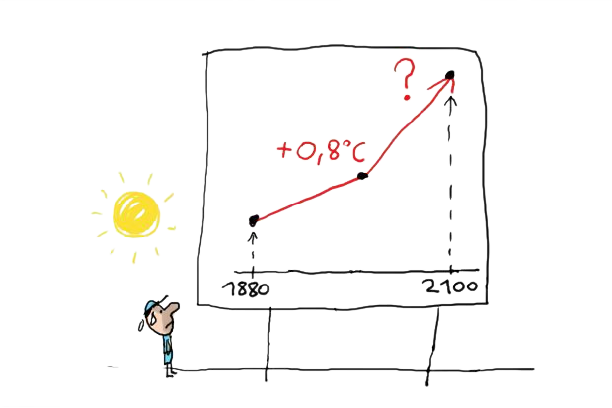 ?
+0,8°C
1880
2100